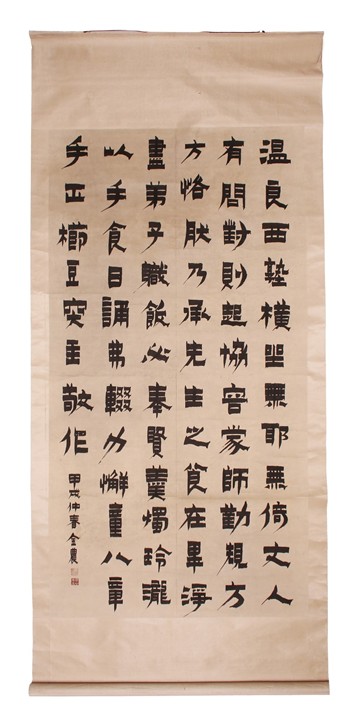 温良西塾橫坐無耶無倚丈人
有問對則起協容蒙師勤規方
方恪肰乃承先生之食在畢淨
盡弟子職飯必奉賢羹燭玲瀧
以手食目誦弗輟力懈童八章
手工櫛豆突重敬作
甲戌仲春金農